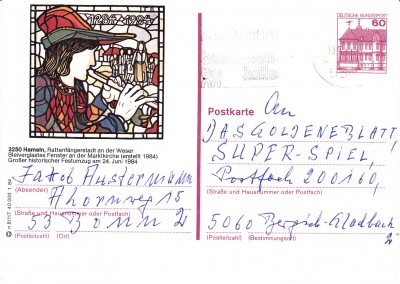 1284-1984
3250 Hameln, Rattenfängerstadt an der Weser
Bleiverglastes Fenster an der Marktkirche (erstellt 1984)
Großer historischer Festumzug am 24. Juni 1984
Mustermann
(Absender)
Ahornweg 15
(Straße und Hausnummer oder Postfach)
53 Bonn 2
(Postleitzahl) (Ort)
DEUTSCHE BUNDESPOST
60
halle
Postkarte
An
DAS GOLDENE BLATT,
SUPER-SPIEL,
Postfach 200160,
(Straße und Hausnummer oder Postfach)
5060 Bergisch-Gladbach
2
(Postleitzahl) (Bestimmungsort)